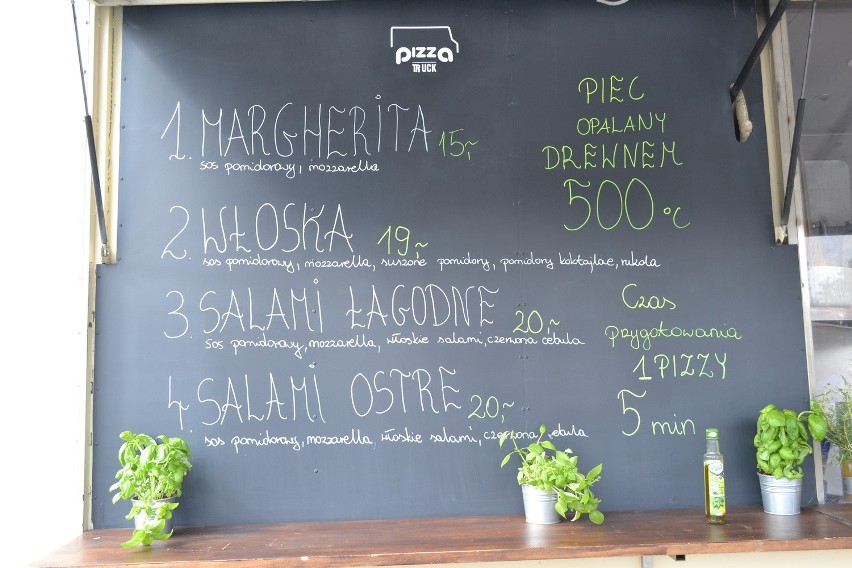 pizza
TRUCK
1. MARGHERITA 15,-
sos pomidorowy, mozzarella
2. WŁOSKA 19,-
sos pomidorowy, mozzarella, suszone pomidory, pomidory koktajlae, rukola
3. SALAMI ŁAGODNE 20,-
sos pomidorowy, mozzarella, włoskie salami, czerwona cebula
4. SALAMI OSTRE 20,-
sos pomidorowy, mozzarella, włoskie salami, czerwona cebula
PIEC
OPALANY
DREWNEM
500 °C
Czas
przygotowania
1 PIZZY
5 min